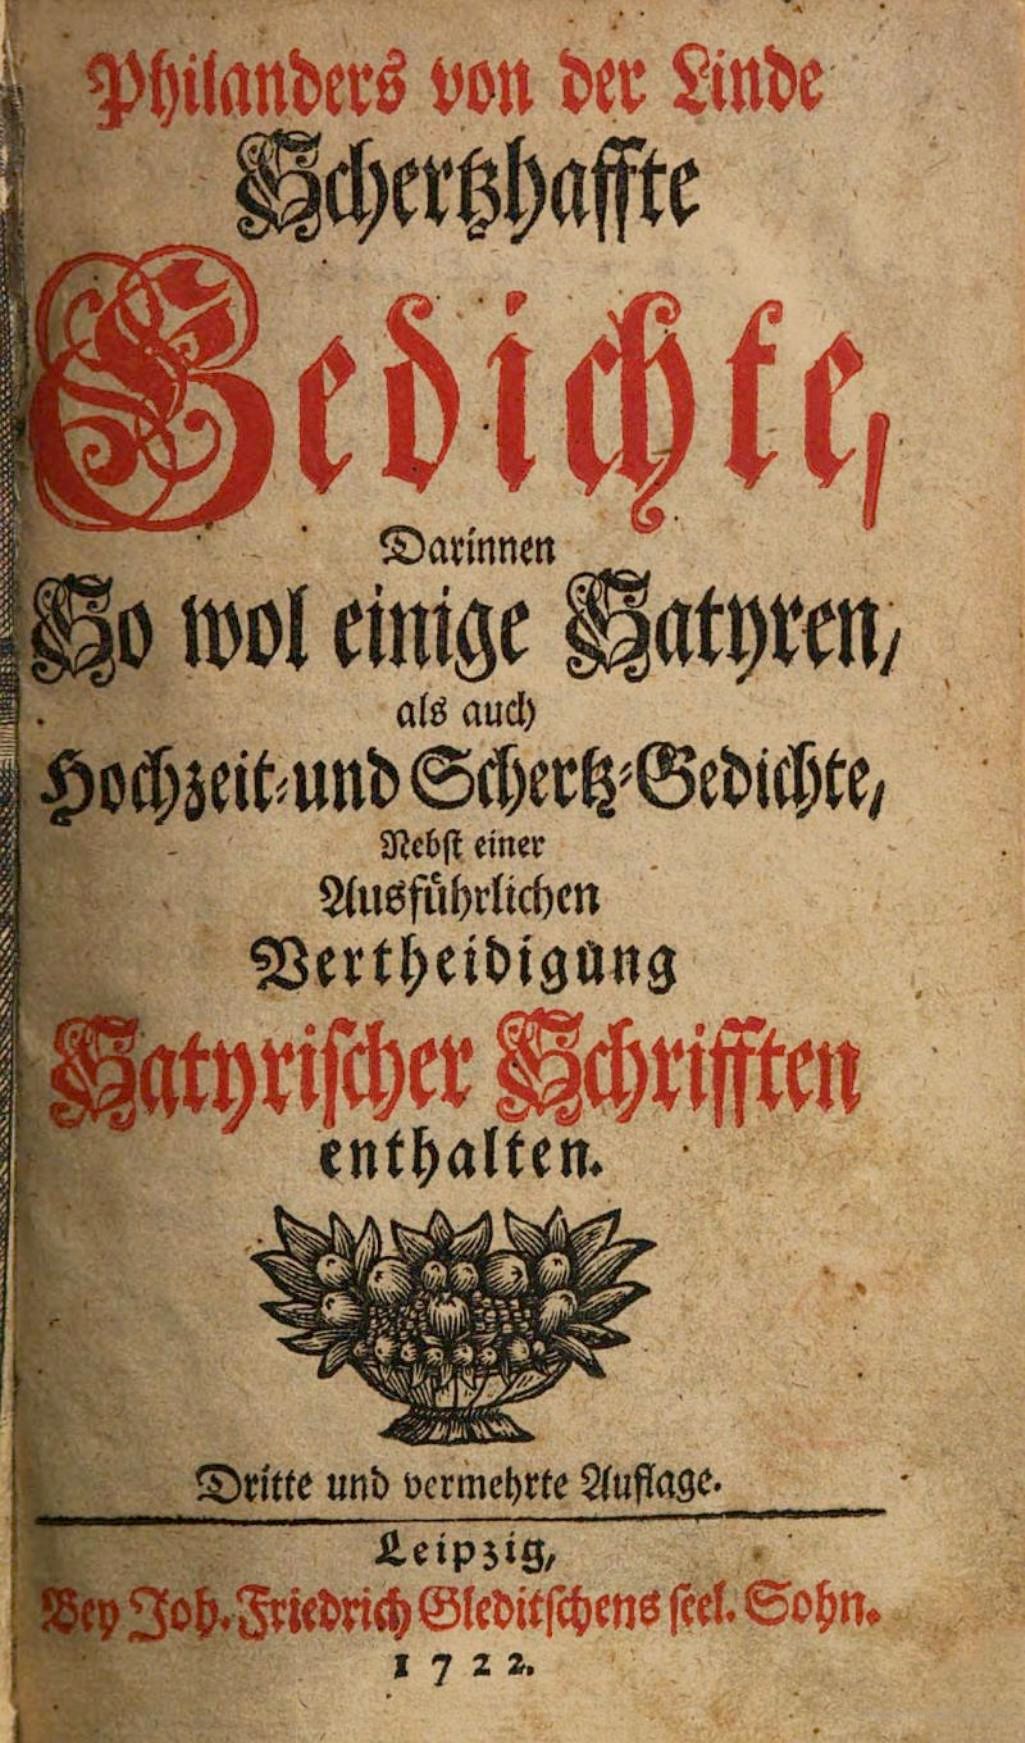 Philanders von der Linde
Schertzhaffte
Gedichte,
Darinnen
So wol einige Satyren,
als auch
Hochzeit-und Schertz-Gedichte,
Nebst einer
Ausführlichen
Vertheidigung
Satyrischer Schrifften
enthalten.
Dritte und vermehrte Auflage.
Leipzig,
Bey Joh. Friedrich Gleditschens seel. Sohn.
1722.